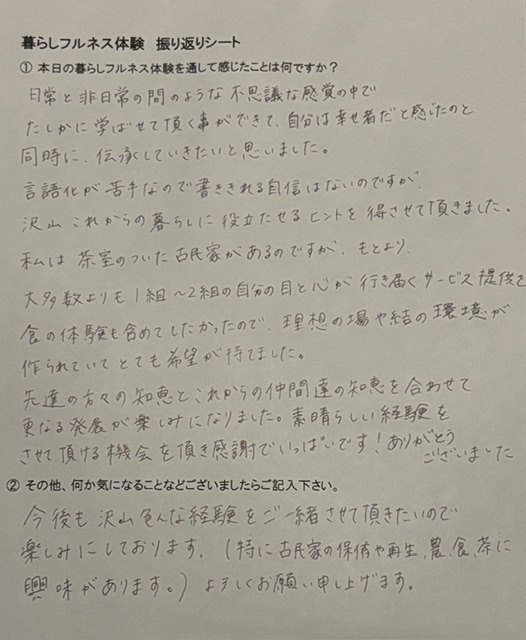 暮らしフルネス体験　振り返りシート
① 本日の暮らしフルネス体験を通して感じたことは何ですか？
日常と非日常の間のような不思議な感覚の中で
たしかに学ばせて頂く事ができて、自分は幸せ者だと感じたのと
同時に、伝承していきたいと思いました。
言語化が苦手なので書ききれる自信はないのですが、
沢山これからの暮らしに役立たせるヒントを得させて頂きました。
私は茶室のついた古民家があるのですが、もとより、
大多数よりも1組〜2組の自分の目と心が行き届くサービス提供を
食の体験も含めてしたかったので、理想の場や結の環境が
作られていてとても希望が持てました。
先達の方々の知恵とこれからの仲間達の知恵を合わせて
更なる発展が楽しみになりました。素晴らしい経験を
させて頂ける機会を頂き感謝でいっぱいです！ありがとう
ございました
② その他、何か気になることなどございましたらご記入下さい。
今後も沢山色んな経験をご一緒させて頂きたいので
楽しみにしております。（特に古民家の保脩や再生、農、食、茶に
興味があります。）よろしくお願い申し上げます。